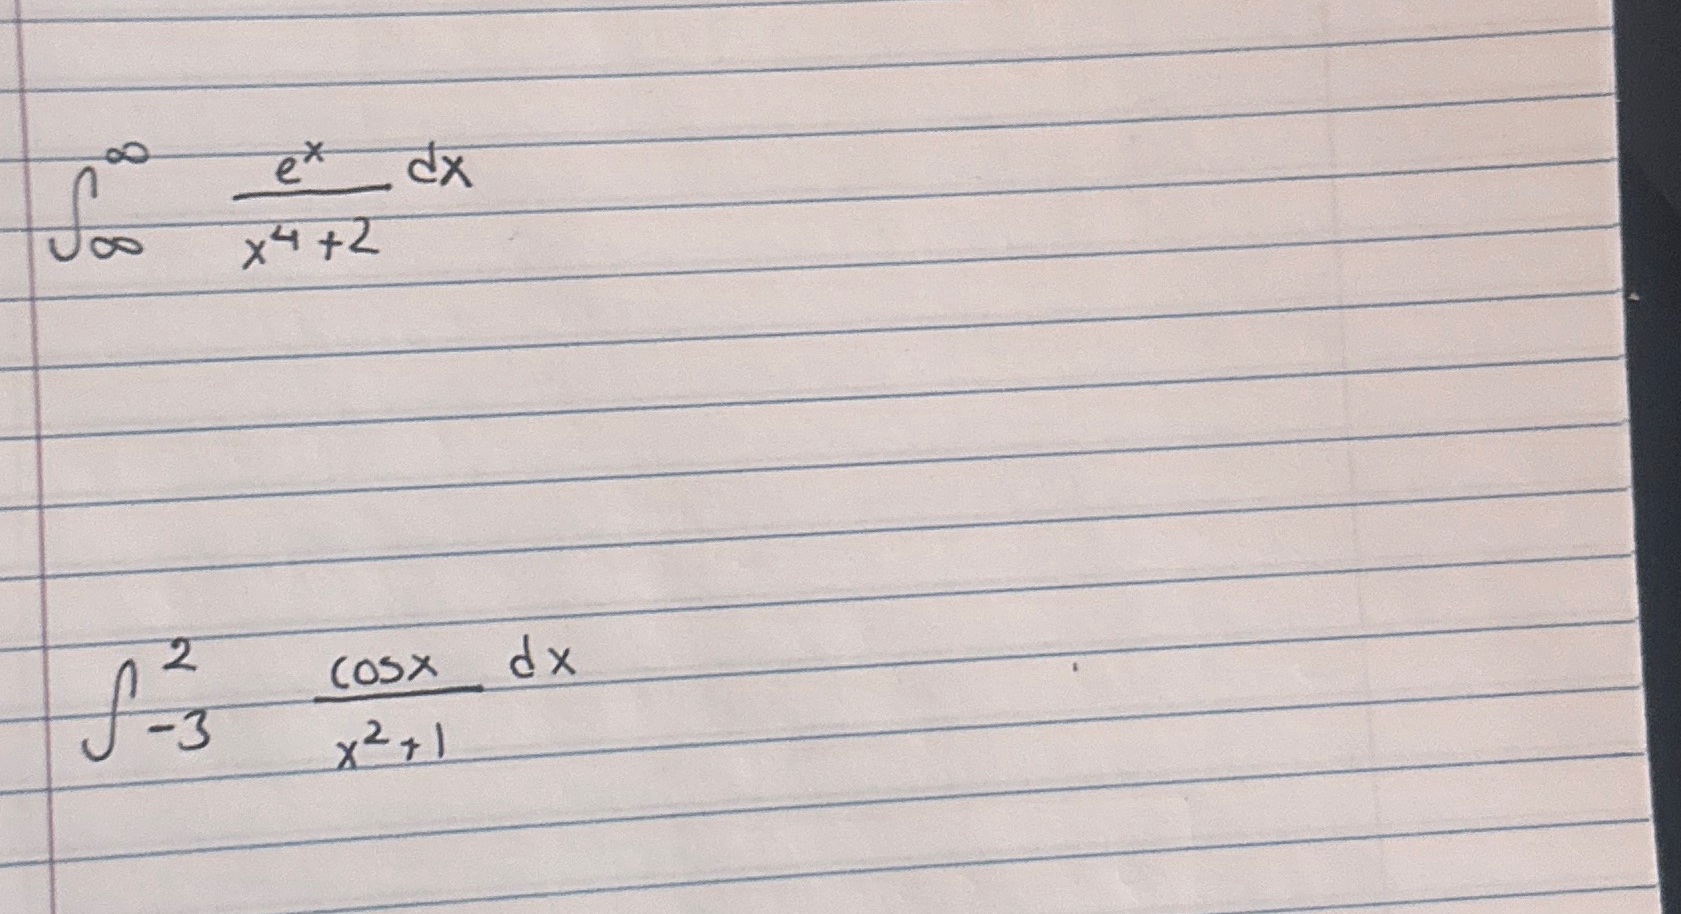 ∫_∞^∞ e^x/(x^4+2) dx
∫_-3^2 cosx/(x^2+1) dx